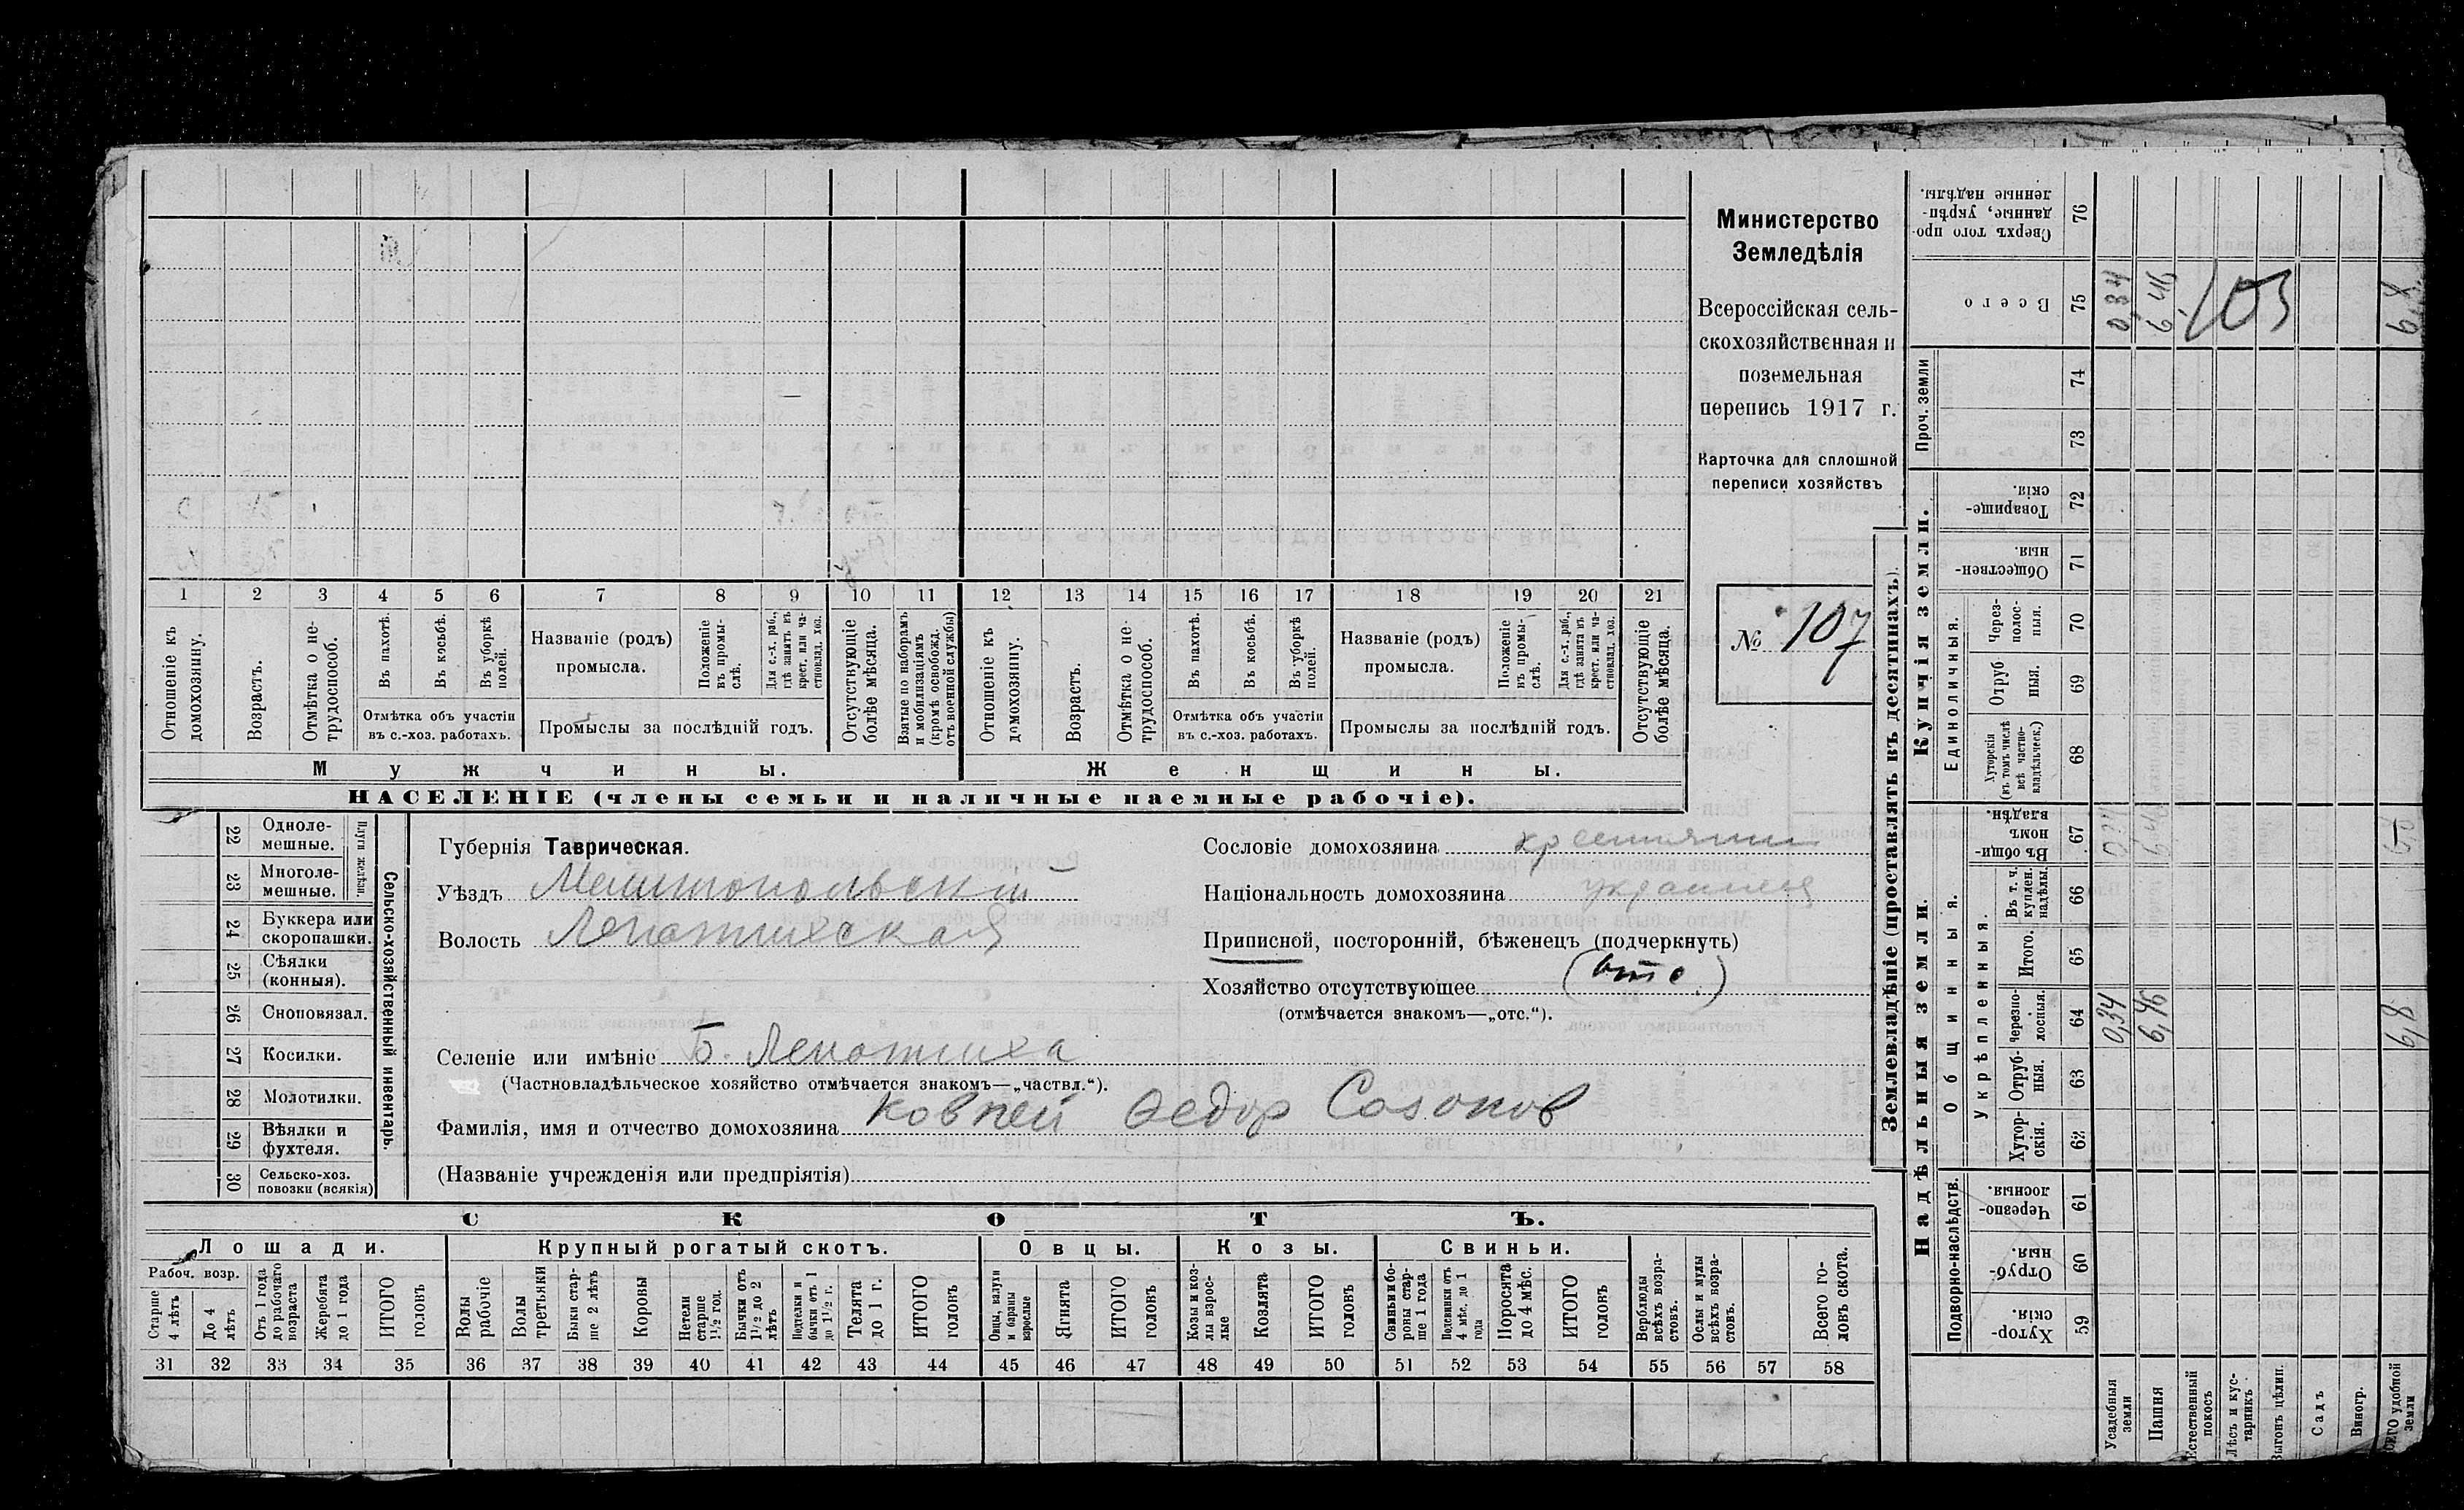 Министерство
Земледѣлія
Всероссійская сель-
скохозяйственная и
поземельная
перепись 1917 г.
Карточка для сплошной
переписи хозяйствъ
№ 107
1 2 3 4 5 6 7 8 9 10 11 12 13 14 15 16 17 18 19 20 21
Отношеніе къ домохозяину.
Возрастъ.
Отмѣтка о не-трудоспособ.
Въ пахотѣ.
Въ косьбѣ.
Въ уборкѣ полей.
Отмѣтка объ участіи
въ с.-хоз. работахъ.
Названіе (родъ)
промысла.
Положеніе въ промы-слѣ.
Для с.-х. раб., гдѣ занятъ въ крест. или ча-стновлад. хоз.
Промыслы за послѣдній годъ.
Отсутствующіе болѣе мѣсяца.
Взятые по наборамъ и мобилизаціямъ (кромѣ освобожд. отъ военной службы)
Отношеніе къ домохозяину.
Возрастъ.
Отмѣтка о не-трудоспособ.
Въ пахотѣ.
Въ косьбѣ.
Въ уборкѣ полей.
Отмѣтка объ участіи
въ с.-хоз. работахъ.
Названіе (родъ)
промысла.
Положеніе въ промы-слѣ.
Для с.-х. раб., гдѣ занята въ крест. или ча-стновлад. хоз.
Промыслы за послѣдній годъ.
Отсутствующіе болѣе мѣсяца.
Мужчины.
Женщины.
НАСЕЛЕНІЕ (члены семьи и наличные наемные рабочіе).
Сельско-хозяйственный инвентарь.
Плуги желѣзн.
22 Одноле-мешные.
23 Многоле-мешные.
24 Буккера или скоропашки.
25 Сѣялки (конныя).
26 Сноповязал.
27 Косилки.
28 Молотилки.
29 Вѣялки и фухтеля.
30 Сельско-хоз. повозки (всякія)
Губернія Таврическая.
Уѣздъ Мелитопольскій
Волость Лепатихская
Селеніе или имѣніе Б. Лепатиха
(Частновладѣльческое хозяйство отмѣчается знакомъ—„частвл.“).
Фамилія, имя и отчество домохозяина Ковпей Федор Созонов
(Названіе учрежденія или предпріятія)
Сословіе домохозяина крестьянин
Національность домохозяина украинец
Приписной, посторонній, бѣженецъ (подчеркнуть)
Хозяйство отсутствующее (отс.)
(отмѣчается знакомъ—„отс.“).
СКОТЪ.
Лошади.
Крупный рогатый скотъ.
Овцы.
Козы.
Свиньи.
Рабоч. возр.
Старше 4 лѣтъ
До 4 лѣтъ
Отъ 1 года до рабочаго возраста
Жеребята до 1 года
ИТОГО головъ
Волы рабочіе
Волы третьяки
Быки стар-ше 2 лѣтъ
Коровы
Нетели старше 1½ год.
Бычки отъ 1½ до 2 лѣтъ
Подтелки и бычки отъ 1 до 1½ г.
Телята до 1 г.
ИТОГО головъ
Овцы, валухи и бараны взрослые
Ягнята
ИТОГО головъ
Козы и коз-лы взрос-лые
Козлята
ИТОГО головъ
Свиньи и бо-ровы стар-ше 1 года
Подсвинки отъ 4 мѣс. до 1 года
Поросята до 4 мѣс.
ИТОГО головъ
Верблюды всѣхъ возра-стовъ.
Ослы и мулы всѣхъ возра-стовъ.
Всего го-ловъ скота.
31 32 33 34 35 36 37 38 39 40 41 42 43 44 45 46 47 48 49 50 51 52 53 54 55 56 57 58
Землевладѣніе (проставлять въ десятинахъ).
Надѣльныя земли.
Купчія земли.
Проч. земли
Подворно-наслѣдств.
Общинныя.
Укрѣпленныя.
Единоличныя.
Сверхъ того про-данные, укрѣп-ленные надѣлы. 76
Всего 75 0,34 6,46 6,8
103
74
73
Товарище-скія. 72
Обществен-ныя. 71
Через-полос-ныя. 70
Отруб-ныя. 69
Хуторскія (въ томъ числѣ всѣ частно-владѣльческ.) 68
Въ общи-номъ владѣн. 67
Въ т. ч. куплен. надѣлы. 66
Итого. 65
Черезпо-лосныя. 64 0,34 6,46 6,8
Отруб-ныя. 63
Хутор-скія. 62
Черезпо-лосныя. 61
Отруб-ныя. 60
Хутор-скія. 59
Усадебныя земли
Пашня
Естественный покосъ
Лѣсъ и кус-тарникъ
Выгонъ цѣлин.
Садъ
Виногр.
ВСЕГО удобной земли